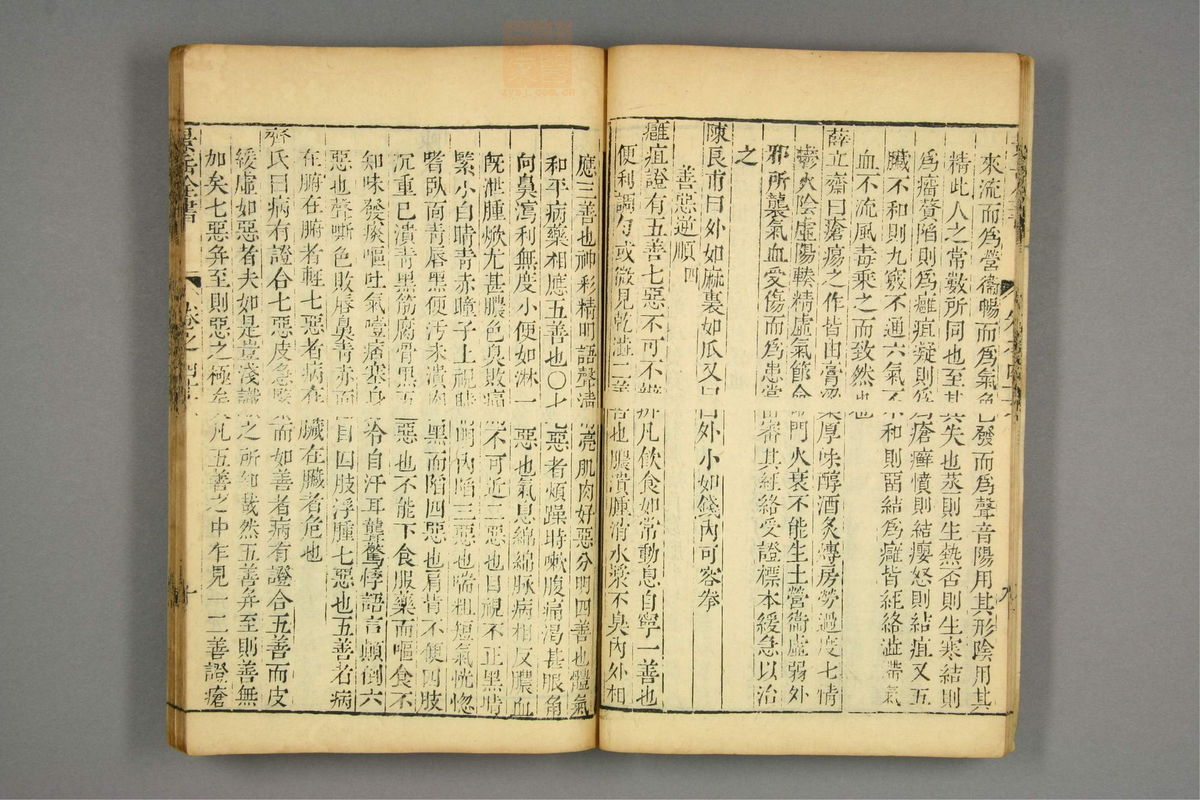 來流而爲營衞暢而爲氣色發而爲聲音陽用其形陰用其
精此人之常數所同也至其失也蒸則生熱否則生寒結則
爲瘤贅陷則爲癰疽凝則爲瘡癬憤則結癭怒則結疽又五
臟不和則九竅不通六氣不和則留結爲癰皆經絡澁滯氣
血不流風毒乘之而致然也
薛立齋曰瘡瘍之作皆由膏粱厚味醇酒炙煿房勞過度七情
鬱火陰虛陽輳精虛氣節命門火衰不能生土營衞虛弱外
邪所襲氣血受傷而爲患當審其經絡受證標本緩急以治
之
陳良甫曰外如麻裏如瓜又曰外小如錢內可容拳
善惡逆順 四
癰疽證有五善七惡不可不辨凡飲食如常動息自寧一善也
便利調勻或微見乾澁二善也膿潰腫消水漿不臭內外相
應三善也神彩精明語聲清亮肌肉好惡分明四善也體氣
和平病藥相應五善也〇七惡者煩躁時嗽腹痛渴甚眼角
向鼻瀉利無度小便如淋一惡也氣息綿綿脉病相反膿血
旣泄腫焮尤甚膿色臭敗痛不可近二惡也目視不正黑睛
緊小白睛青赤瞳子上視睛明內陷三惡也喘粗短氣恍惚
嗜臥面青唇黑便汚未潰肉黑而陷四惡也肩背不便四肢
沉重已潰青黑筋腐骨黑五惡也不能下食服藥而嘔食不
知味發痰嘔吐氣噎痞塞身冷自汗耳聾驚悸語言顛倒六
惡也聲嘶色敗唇鼻青赤面目四肢浮腫七惡也五善者病
在腑在腑者輕七惡者病在臟在臟者危也
齊氏曰病有證合七惡皮急緊而如善者病有證合五善而皮
緩虛如惡者夫如是豈淺識之所知哉然五善幷至則善無
如矣七惡幷至則惡之極矣凡五善之中乍見一二善證瘡
景岳全書
卷之
九
十